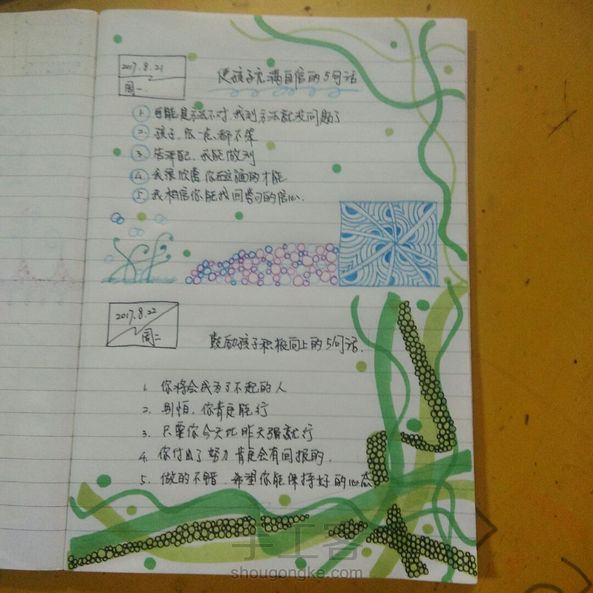 2017.8.21
周一
使孩子充满自信的5句话
1 可能是方法不对,找到方法就没问题了
2 孩子,你一点都不笨
3 告诉自己,我能做到
4 我很欣赏你在这方面的才能
5 我相信你能找回学习的信心.
2017.8.22
周二
鼓励孩子积极向上的5句话.
1. 你将会成为了不起的人
2. 别怕,你肯定能行
3. 只要你今天比昨天强就行
4. 你付出了努力肯定会有回报的.
5. 做的不错,希望你能保持好的心态
手工客
shougongke.com